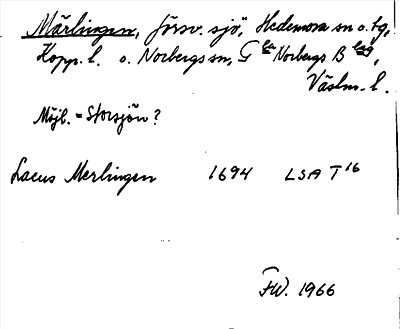 Märlingen, försv. sjö, Hedemora sn o. tg,
Kopp. l. o. Norbergs sn, Gla Norbergs Blag,
Västm. l.
Möjl. = Storsjön?
Lacus Merlingen 1694 LSA T16
FW. 1966